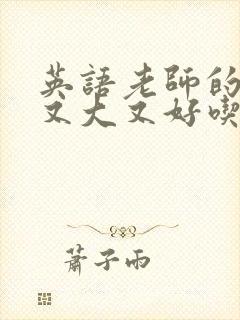 英語老師的
又大又好喫
蕭子雨